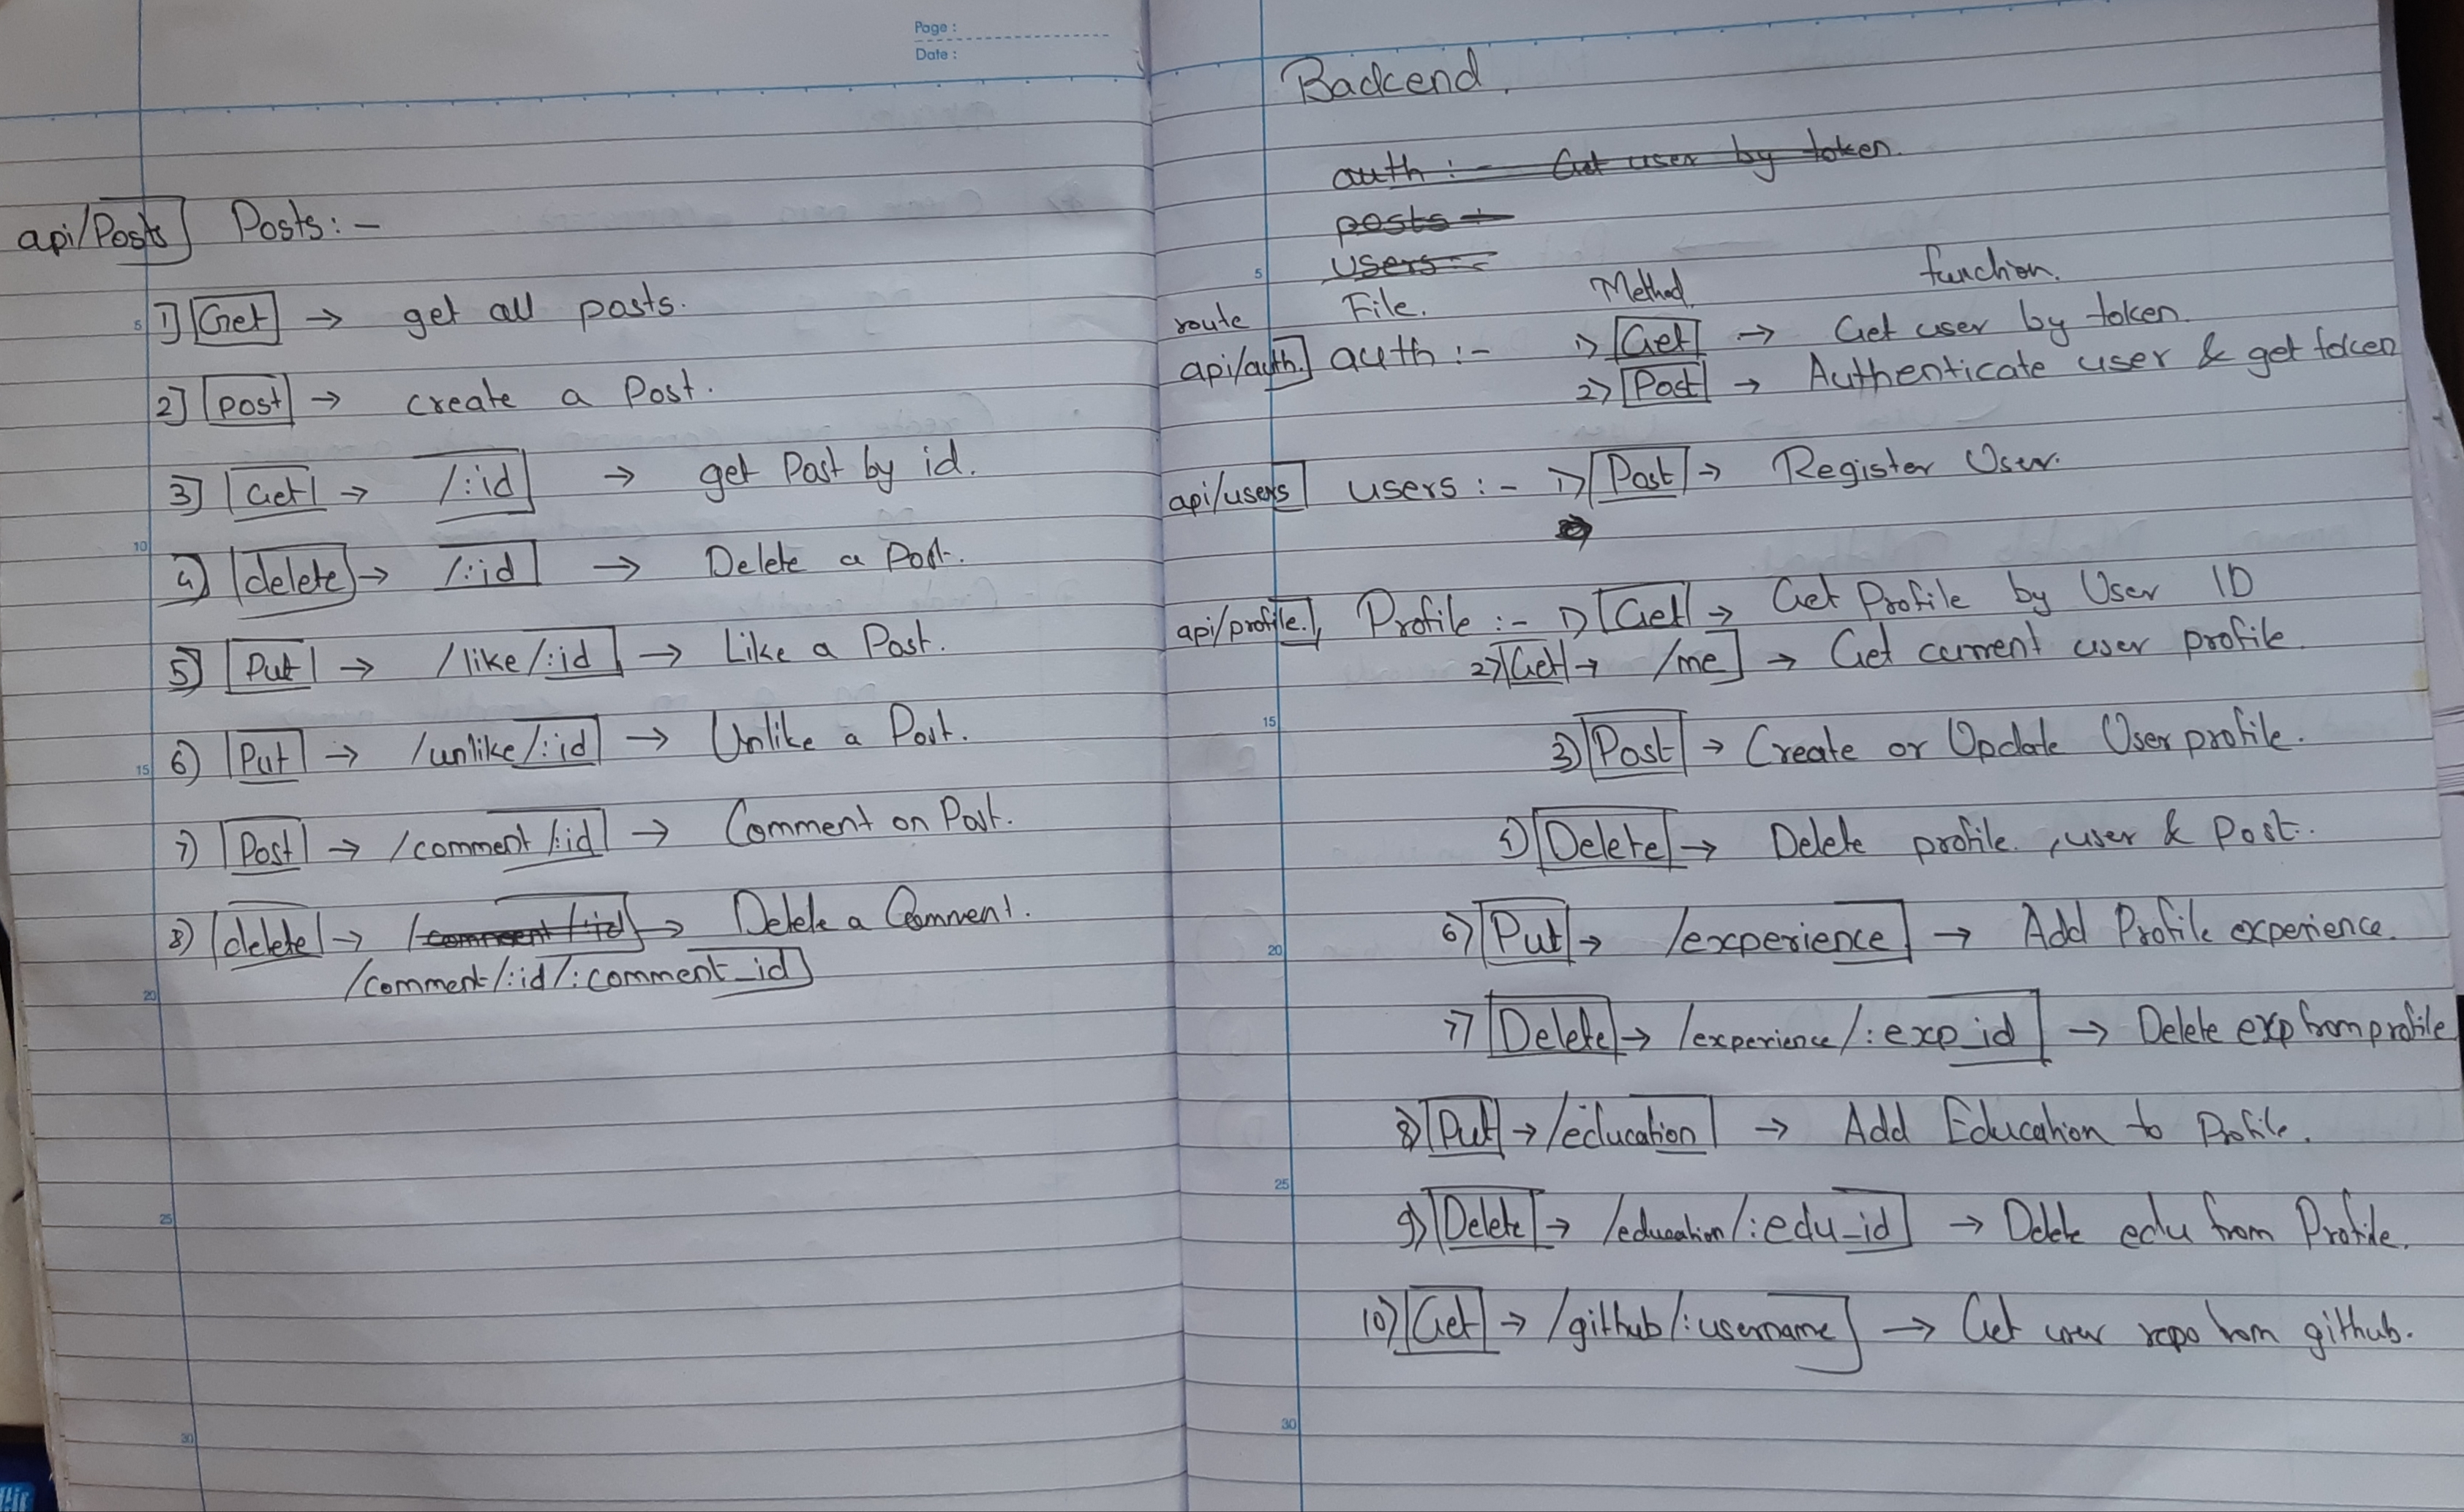 Page :
Date :
api/Posts Posts :-
1) Get → get all posts.
2) post → create a Post.
3) Get → /:id → get Post by id.
4) delete → /:id → Delete a Post.
5) Put → /like/:id → Like a Post.
6) Put → /unlike/:id → Unlike a Post.
7) Post → /comment/:id → Comment on Post.
8) delete → /comment/:id → Delete a Comment.
/comment/:id/:comment_id
5
10
15
20
25
30
Backend
auth :- Get user by token.
posts
users
route File. Method function.
api/auth. auth :- 1) Get → Get user by token.
2) Post → Authenticate user & get token
api/users users :- 1) Post → Register User.
api/profile. Profile :- 1) Get → Get Profile by User ID
2) Get → /me → Get current user profile.
3) Post → Create or Update User profile.
Delete → Delete profile, user & Post.
6) Put → /experience → Add Profile experience.
7) Delete → /experience/:exp_id → Delete exp from profile
8) Put → /education → Add Education to Profile.
9) Delete → /education/:edu_id → Delete edu from Profile.
10) Get → /github/:username → Get user repo from github.
5
15
20
25
30